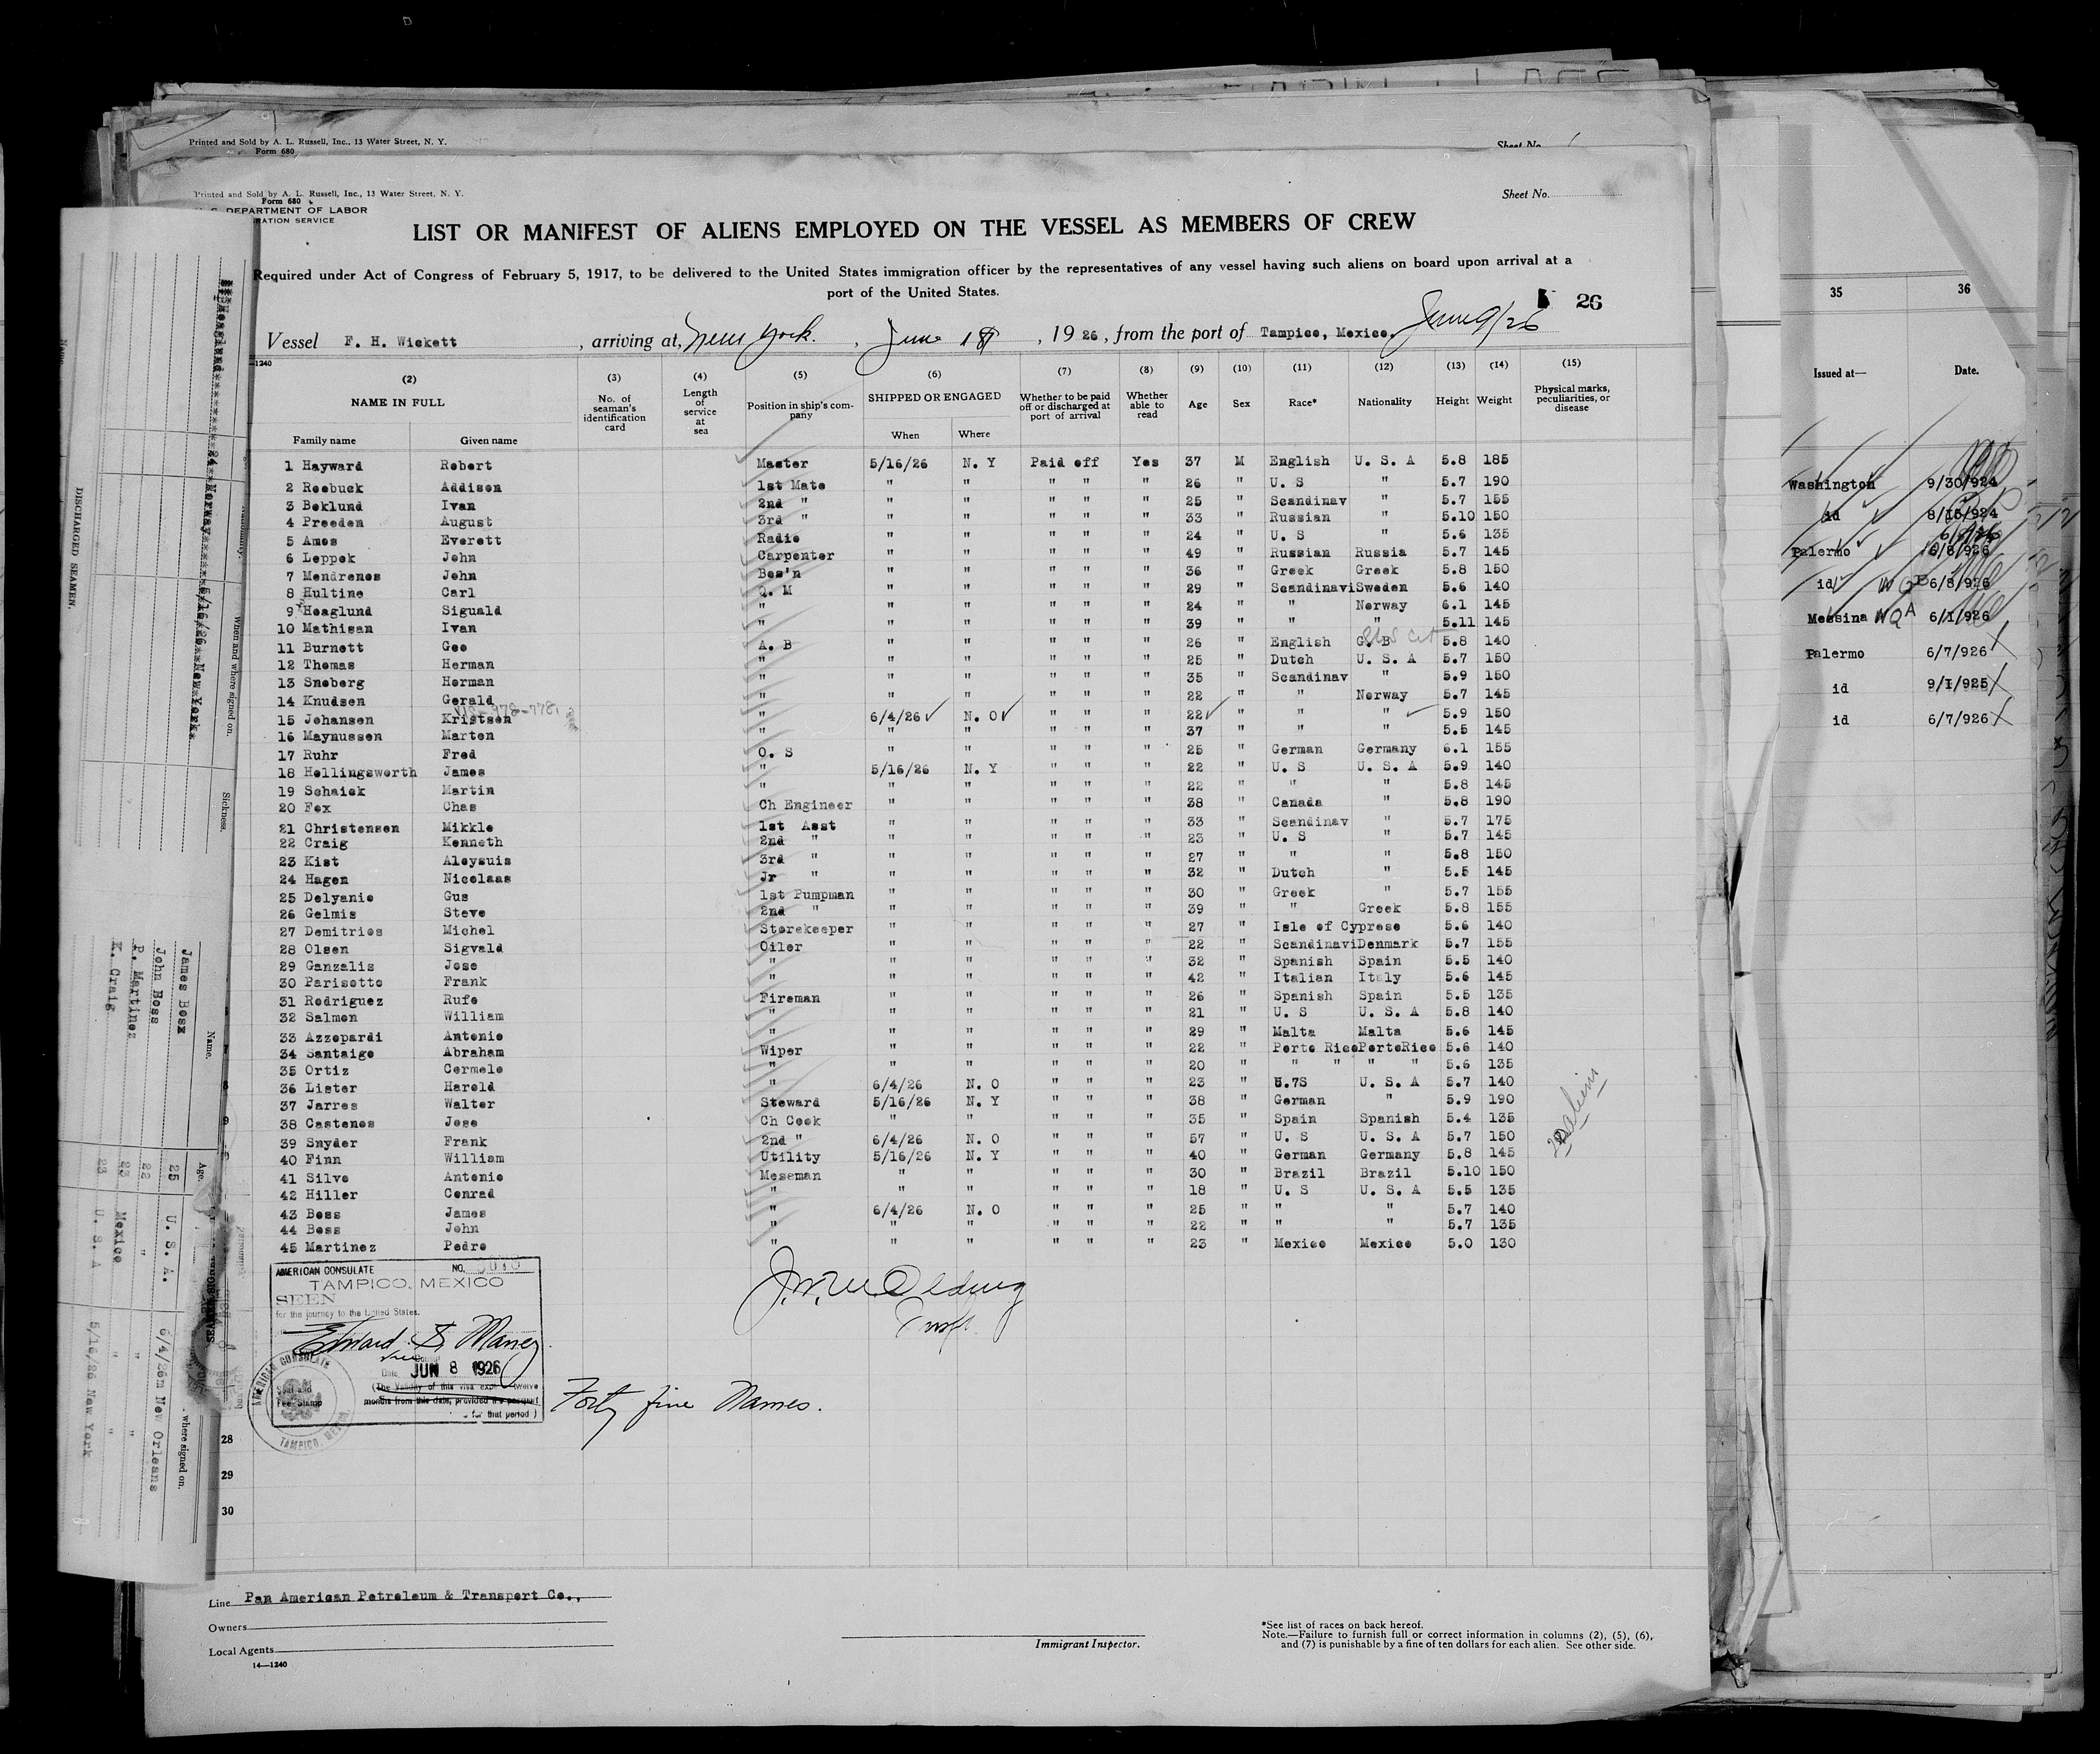 Printed and Sold by A. L. Russell, Inc., 13 Water Street, N. Y.
Form 680
Sheet No.
Printed and Sold by A. L. Russell, Inc., 13 Water Street, N. Y.
Form 680
Sheet No.
DEPARTMENT OF LABOR
RATION SERVICE
LIST OR MANIFEST OF ALIENS EMPLOYED ON THE VESSEL AS MEMBERS OF CREW
Required under Act of Congress of February 5, 1917, to be delivered to the United States immigration officer by the representatives of any vessel having such aliens on board upon arrival at a
port of the United States.
26
Vessel F. H. Wickett, arriving at, New York., June 18, 1926, from the port of Tampico, Mexico. June 9/26
—1240
(2) (3) (4) (5) (6) (7) (8) (9) (10) (11) (12) (13) (14) (15)
NAME IN FULL No. of seaman's identification card Length of service at sea Position in ship's company SHIPPED OR ENGAGED Whether to be paid off or discharged at port of arrival Whether able to read Age Sex Race* Nationality Height Weight Physical marks, peculiarities, or disease
Family name Given name When Where
1 Hayward Robert Master 5/16/26 N. Y Paid off Yes 37 M English U. S. A 5.8 185
2 Roebuck Addison 1st Mate " " " " " 26 " U. S " 5.7 190
3 Beklund Ivan 2nd " " " " " " 25 " Scandinav " 5.7 155
4 Preeden August 3rd " " " " " " 33 " Russian " 5.10 150
5 Ames Everett Radio " " " " " 24 " U. S " 5.6 135
6 Leppek John Carpenter " " " " " 49 " Russian Russia 5.7 145
7 Mendrenos John Bos'n " " " " " 36 " Greek Greek 5.8 150
8 Hultine Carl Q. M " " " " " 29 " Scandinavi Sweden 5.6 140
9 Hoaglund Siguald " " " " " " 24 " " Norway 6.1 145
10 Mathisan Ivan " " " " " " 39 " " " 5.11 145
11 Burnett Geo A. B " " " " " 26 " English G. B 5.8 140
12 Thomas Herman " " " " " " 25 " Dutch U. S. A 5.7 150
13 Sneberg Herman " " " " " " 35 " Scandinav " 5.9 150
14 Knudsen Gerald " " " " " " 22 " " Norway 5.7 145
15 Johansen Kristsen " 6/4/26 N. O " " " 22 " " " 5.9 150
16 Maynussen Marten " " " " " " 37 " " " 5.5 145
17 Ruhr Fred O. S " " " " " 25 " German Germany 6.1 155
18 Hollingsworth James " 5/16/26 N. Y " " " 22 " U. S U. S. A 5.9 140
19 Schaick Martin " " " " " " 22 " " " 5.8 145
20 Fox Chas Ch Engineer " " " " " 38 " Canada " 5.8 190
21 Christensen Mikkle 1st Asst " " " " " 33 " Scandinav " 5.7 175
22 Craig Kenneth 2nd " " " " " " 23 " U. S " 5.7 145
23 Kist Aloysuis 3rd " " " " " " 27 " " " 5.8 150
24 Hagen Nicolaas Jr " " " " " " 32 " Dutch " 5.5 145
25 Delyanie Gus 1st Pumpman " " " " " 30 " Greek " 5.7 155
26 Gelmis Steve 2nd " " " " " " 39 " " Greek 5.8 155
27 Demitrios Michel Storekeeper " " " " " 27 " Isle of Cyprese 5.6 140
28 Olsen Sigvald Oiler " " " " " 22 " Scandinavi Denmark 5.7 155
29 Ganzalis Jose " " " " " " 32 " Spanish Spain 5.5 140
30 Parisotto Frank " " " " " " 42 " Italian Italy 5.6 145
31 Rodriguez Rufo Fireman " " " " " 26 " Spanish Spain 5.5 135
32 Salmon William " " " " " " 21 " U. S U. S. A 5.8 140
33 Azzopardi Antonio " " " " " " 29 " Malta Malta 5.6 145
34 Santaigo Abraham Wiper " " " " " 22 " Porto Rico PortoRico 5.6 140
35 Ortiz Cormelo " " " " " " 20 " " " " " 5.6 135
36 Lister Harold " 6/4/26 N. O " " " 23 " U.7S U. S. A 5.7 140
37 Jarres Walter Steward 5/16/26 N. Y " " " 38 " German " 5.9 190
38 Castenos Jose Ch Cook " " " " " 35 " Spain Spanish 5.4 135
39 Snyder Frank 2nd " 6/4/26 N. O " " " 57 " U. S U. S. A 5.7 150
40 Finn William Utility 5/16/26 N. Y " " " 40 " German Germany 5.8 145
41 Silve Antonio Messman " " " " " 30 " Brazil Brazil 5.10 150
42 Hiller Conrad " " " " " " 18 " U. S U. S. A 5.5 135
43 Boss James " 6/4/26 N. O " " " 25 " " " 5.7 140
44 Boss John " " " " " " 22 " " " 5.7 135
45 Martinez Pedro " " " " " " 23 " Mexico Mexico 5.0 130
aliens
AMERICAN CONSULATE NO.
TAMPICO, MEXICO
SEEN
for the journey to the United States.
Edward S Maney
Date JUN 8 1926
(The Validity of this visa expires twelve
months from this date, provided the passport
for that period)
Seal and
Fee Stamp
AMERICAN CONSULATE
TAMPICO, MEXICO
Forty five Names.
28
29
30
Line Pan American Petroleum & Transport Co.,
Owners
Local Agents
14—1240
Immigrant Inspector.
*See list of races on back hereof.
Note.—Failure to furnish full or correct information in columns (2), (5), (6),
and (7) is punishable by a fine of ten dollars for each alien. See other side.
DISCHARGED SEAMEN.
Name.
Age.
Nationality.
When and where signed on.
Sickness.
Hoaglund 24 Norway 5/16/26 New York
James Bosx 25 U. S. A. 6/4/26n New Orleans
John Boss 22 " "
P. Martinez 23 Mexico " "
K. Craig 23 U. S. A 5/16/26 New York
where signed on.
35 36
Issued at— Date.
Washington 9/30/924
id 8/15/924
Palermo 6/8/926
id 6/8/926
Messina 6/1/926
Palermo 6/7/926
id 9/1/925
id 6/7/926